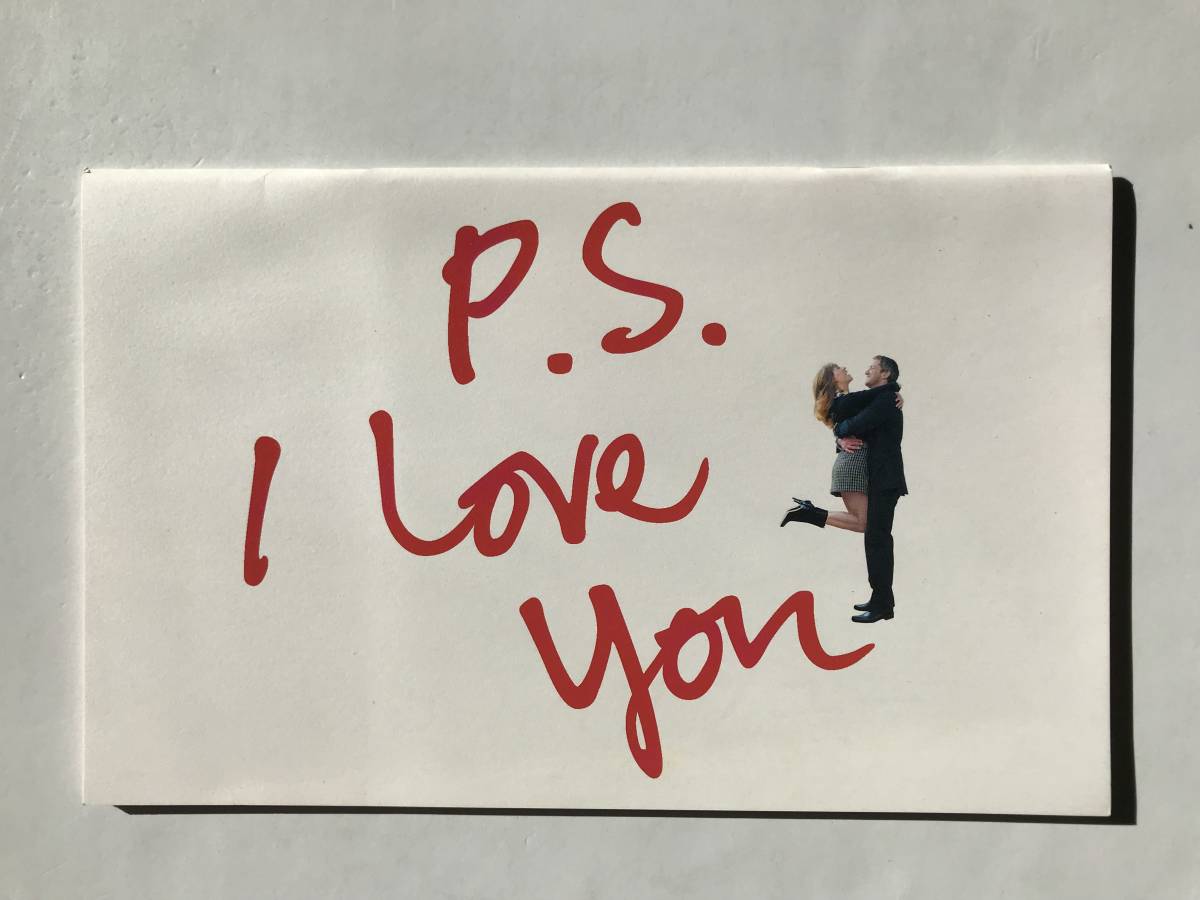 P.S.
I Love
You